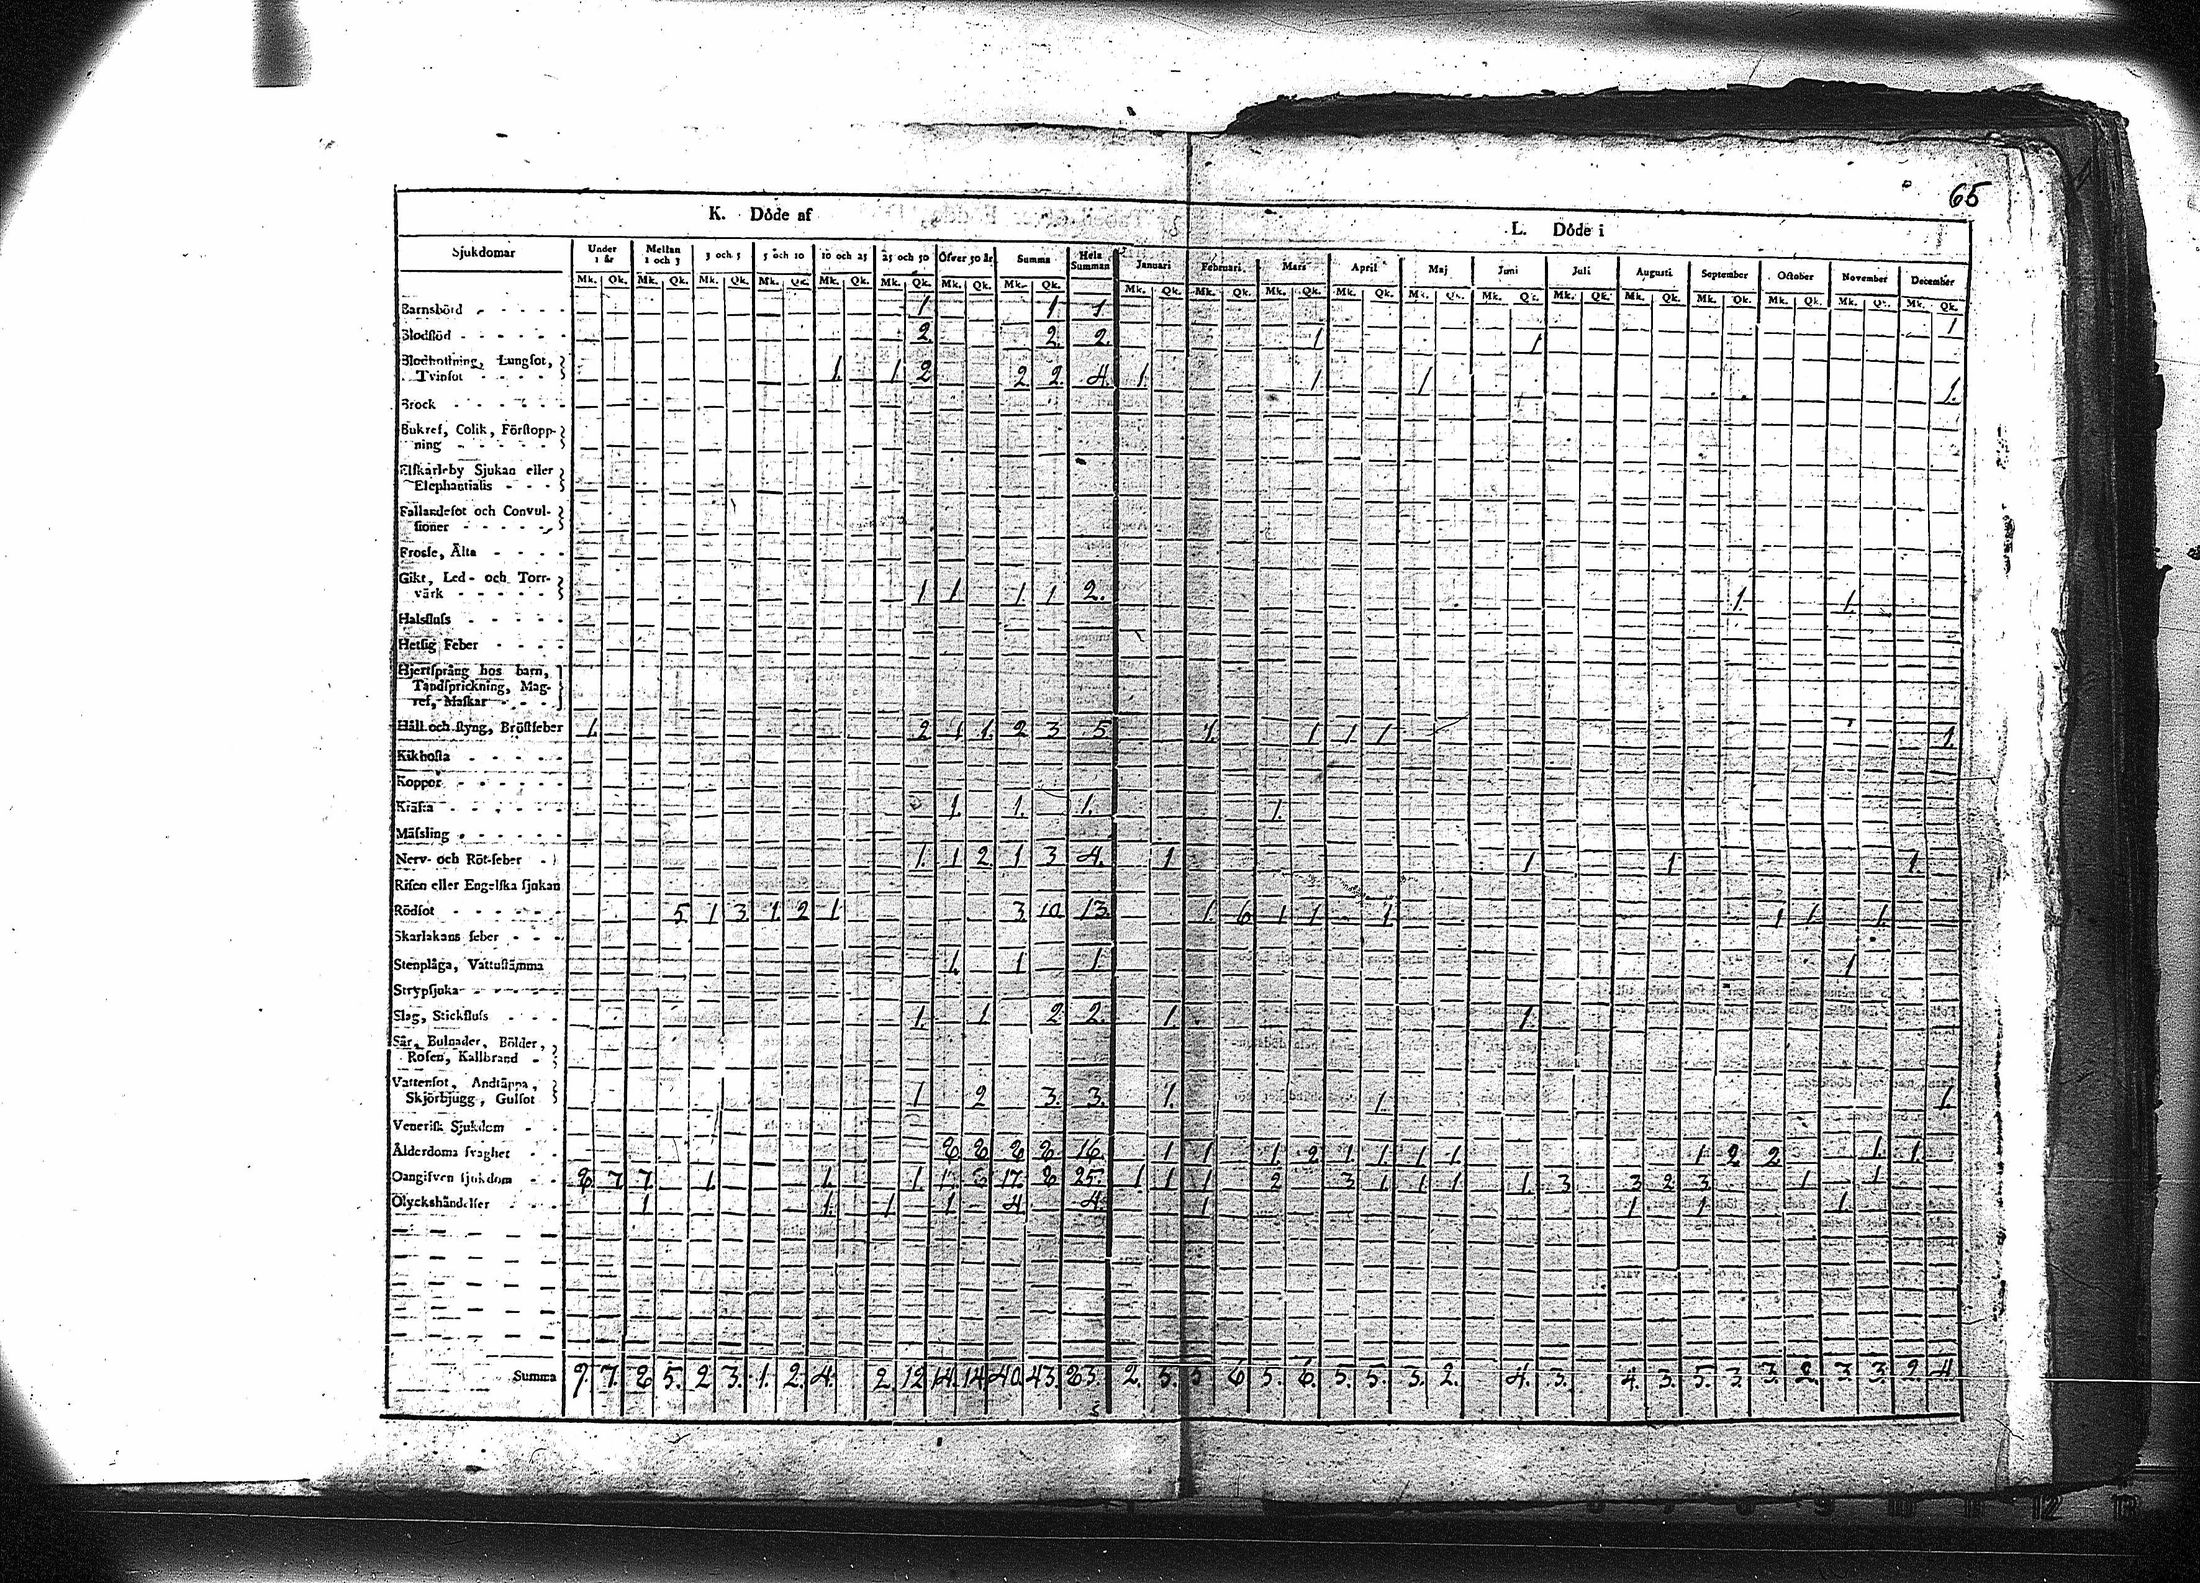 65
K. Döde af
L. Döde i
Sjukdomar Under 1 år Mellan 1 och 3 3 och 5 5 och 10 10 och 25 25 och 50 Öfver 50 år Summa Hela Summan Januari Februari Mars April Maj Juni Juli Augusti September October November December
Mk. Qk. Mk. Qk. Mk. Qk. Mk. Qk. Mk. Qk. Mk. Qk. Mk. Qk. Mk. Qk. Mk. Qk. Mk. Qk. Mk. Qk. Mk. Qk. Mk. Qk. Mk. Qk. Mk. Qk. Mk. Qk. Mk. Qk. Mk. Qk. Mk. Qk. Mk. Qk.
Barnsbörd 1 1 1 1
Blodflöd 2. 2. 2. 1 1
Blodhostning, Lungsot,
Tvinsot 1. 1 2 2 2. 4. 1. 1 1 1.
Brock
Bukref, Colik, Förstopp-
ning
Elfkarleby Sjukan eller
Elephantiasis
Fallandesot och Convul-
sioner
Frossa, Älta
Gikt, Led- och Torr-
värk 1 1 1 1 2. 1. 1.
Halsfluss
Hetsig Feber
Hjertsprång hos barn,
Tandsprickning, Mag-
ref, Maskar
Håll och styng, Bröstfeber 1. 2 1 1. 2 3 5 1. 1 1 1 1.
Kikhosta
Koppor
Kräfta 1. 1. 1. 1.
Mässling
Nerv- och Röt-feber 1. 1 2 1 3 4. 1 1 1 1.
Risen eller Engelska sjukan
Rödsot 5 1 3 1. 2 1 3 10 13. 1. 6 1 1 1 1 1 1.
Skarlakans feber
Stenplåga, Vattustämma 1. 1 1 1
Strypsjuka
Slag, Stickfluss 1. 1 2 2. 1. 1.
Sår, Bulnader, Bölder,
Rosen, Kallbrand
Vattensot, Andtäppa,
Skjörbjugg, Gulsot 1 2 3. 3. 1. 1. 1.
Venerisk Sjukdom
Ålderdoms svaghet 8 8 8 8 16. 1 1 1 2 1. 1. 1 1. 1 2 2 1. 1.
Oangifven sjukdom 8 7 7. 1. 1. 1. 17. 8 25. 1 1 1 2 3 1 1 1 1. 3 3 2 3 1 1
Olyckshändelser 1 1. 1 1 4. 4. 1 1 1 1
Summa 9. 7. 8 5. 2 3. 1. 2. 4. 2. 12 14. 14 40. 43. 83. 2. 5. 5 6 5. 6. 5. 5. 3. 2. 4. 3. 4. 3. 5. 3. 3. 2. 3. 3. 2. 4.